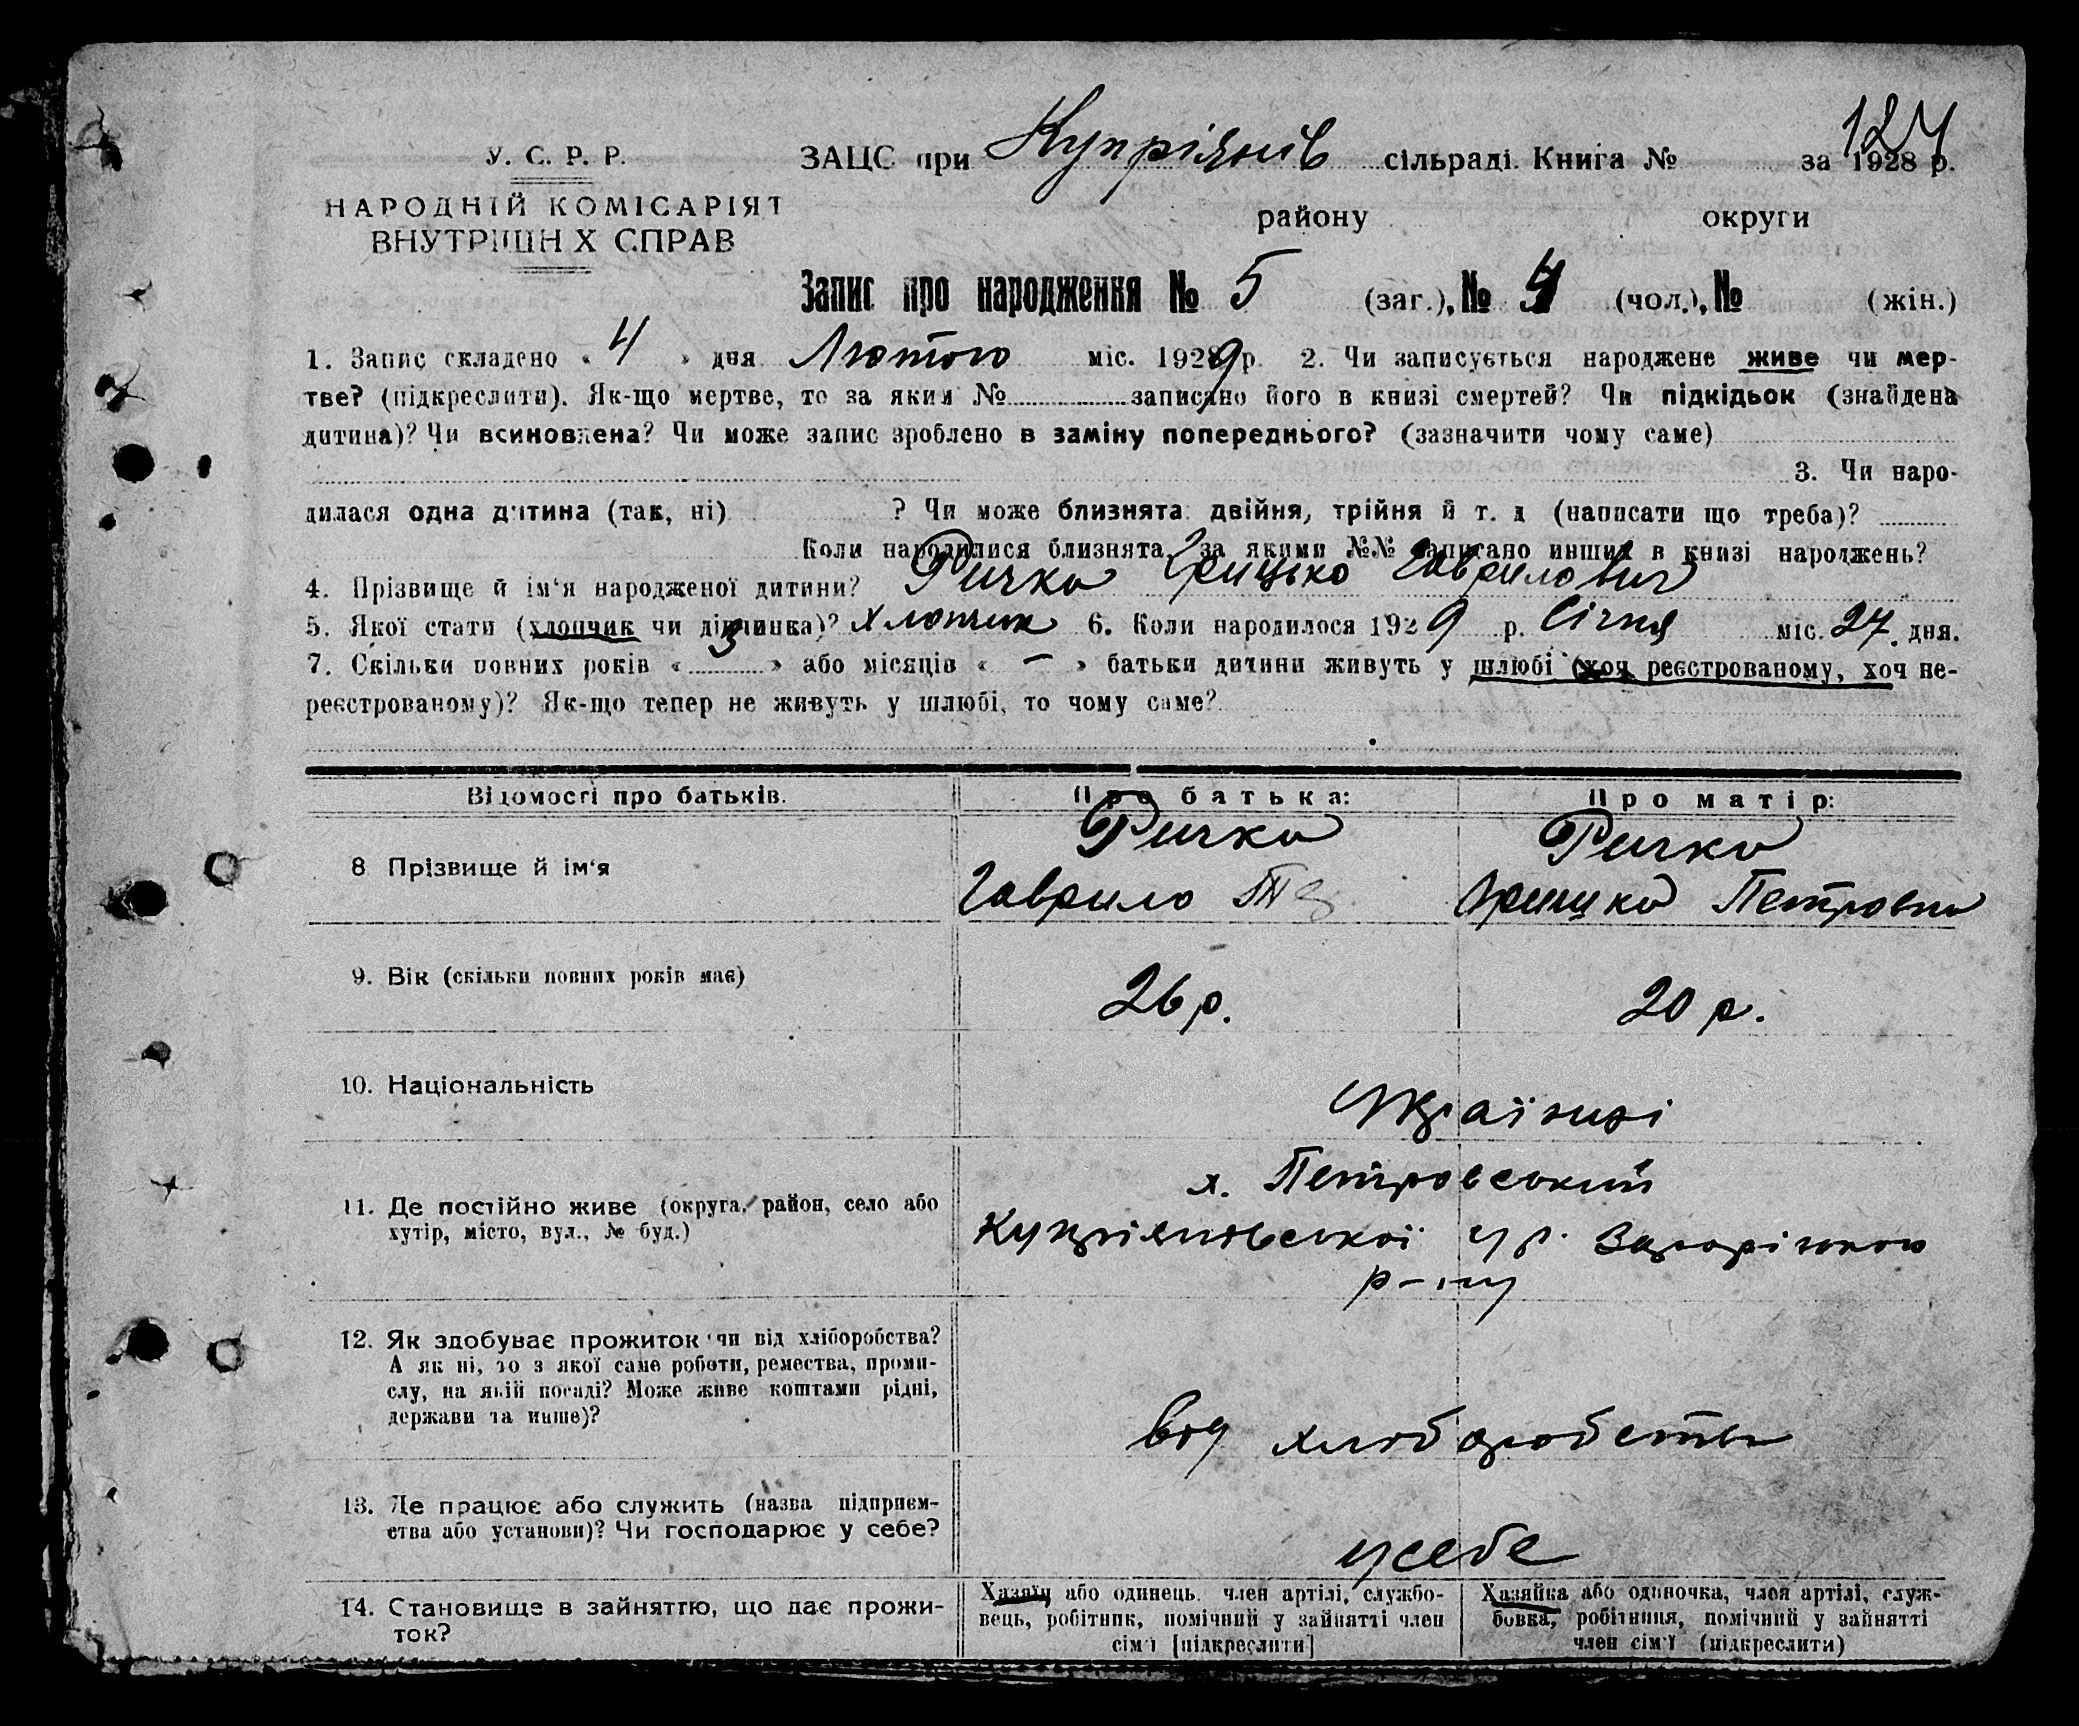 127
У. С. Р. Р.
ЗАЦС при Купріянів сільраді. Книга № за 1928 р.
НАРОДНІЙ КОМІСАРІЯТ
ВНУТРІШНІХ СПРАВ
району округи
Запис про народження № 5 (заг.), № 4 (чол.), № (жін.)
1. Запис складено « 4 » дня Лютого міс. 1929 р. 2. Чи записується народжене живе чи мер-
тве? (підкреслити). Як-що мертве, то за яким № записано його в книзі смертей? Чи підкідьок (знайдена
дитина)? Чи всиновлена? Чи може запис зроблено в заміну попереднього? (зазначити чому саме)
3. Чи наро-
дилася одна дитина (так, ні) ? Чи може близнята: двійня, трійня й т. д (написати що треба)?
Коли народилися близнята, за якими №№ записано инших в книзі народжень?
4. Прізвище й ім'я народженої дитини? Ричко Грицько Гаврилович
5. Якої стати (хлопчик чи дівчинка)? Хлопчик 6. Коли народилося 1929 р. Січня міс. 27. дня.
7. Скільки повних років « 3 » або місяців « — » батьки дитини живуть у шлюбі (хоч реєстрованому, хоч не-
реєстрованому)? Як-що тепер не живуть у шлюбі, то чому саме?
Відомості про батьків. Про батька: Про матір:
8 Прізвище й ім'я Ричко Гаврило Ричко Петровна
9. Вік (скільки повних років має) 26 р. 20 р.
10. Національність Українці
11. Де постійно живе (округа, район, село або
хутір, місто, вул., № буд.)
х. Петровський
Купріяновської с/р. Запорізького
р-ну
12. Як здобуває прожиток чи від хліборобства?
А як ні, то з якої саме роботи, ремества, проми-
слу, на якій посаді? Може живе коштами рідні,
держави та инше)?
від хліборобства
13. Де працює або служить (назва підприєм-
ства або установи)? Чи господарює у себе?
у себе
14. Становище в зайняттю, що дає прожи-
ток?
Хазяїн або одинець, член артілі, службо-
вець, робітник, помічний у зайнятті член
сім'ї [підкреслити]
Хазяйка або одиночка, член артілі, служ-
бовка, робітниця, помічний у зайнятті
член сім'ї (підкреслити)